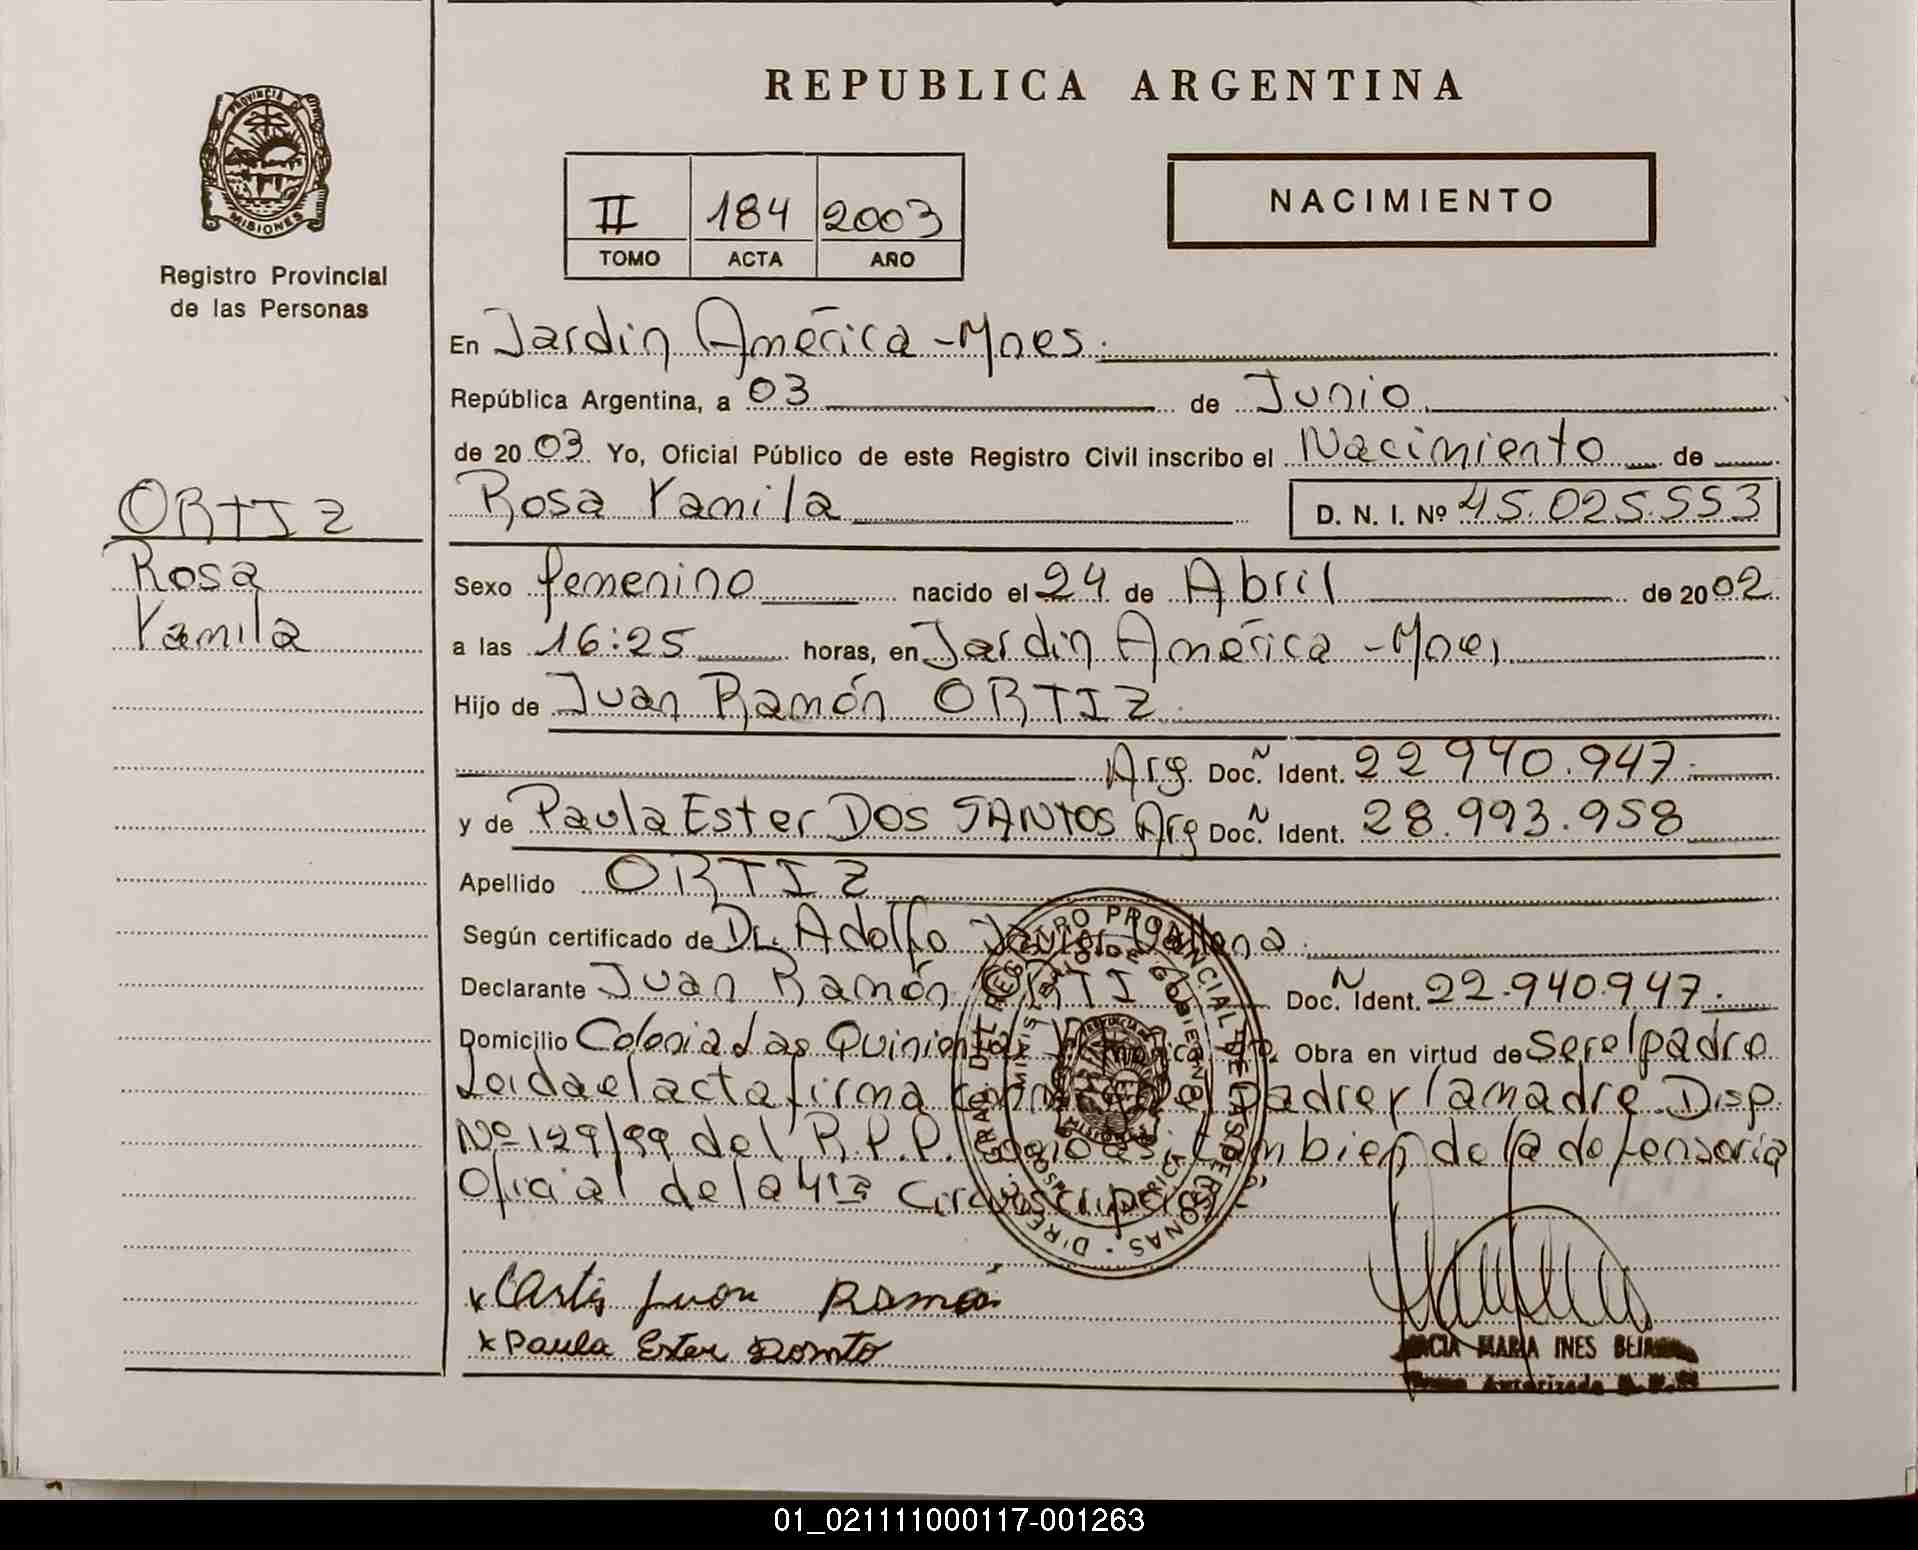 REPUBLICA ARGENTINA
PROVINCIA DE
MISIONES
Registro Provincial
de las Personas
NACIMIENTO
II 184 2003
TOMO ACTA AÑO
En Jardin América - Mnes.
República Argentina, a 03 de Junio
de 2003 Yo, Oficial Público de este Registro Civil inscribo el Nacimiento de
Rosa Yamila D. N. I. Nº 45.025.553
ORTIZ
Rosa
Yamila
Sexo femenino nacido el 24 de Abril de 2002
a las 16:25 horas, en Jardin América - Mnes
Hijo de Juan Ramón ORTIZ
Arg. Doc. N Ident. 22.940.947
y de Paula Ester DOS SANTOS Arg Doc. N Ident. 28.993.958
Apellido ORTIZ
Según certificado de Dr. Adolfo Javier
Declarante Juan Ramón ORTIZ Doc. N Ident. 22.940.947
Domicilio Colonia Las Quinientas Obra en virtud de ser el padre
Leida el acta firma el padre y la madre. Disp.
Nº 129/99 del R.P.P. tambien de la defensoria
Oficial de la 4ta Circunscripción
DIRECCION GRAL DEL REGISTRO PROVINCIAL DE LAS PERSONAS
MINISTERIO DE GOBIERNO
x Ortis Juan Ramón
x Paula Ester
MARIA INES
Autorizada
01_021111000117-001263